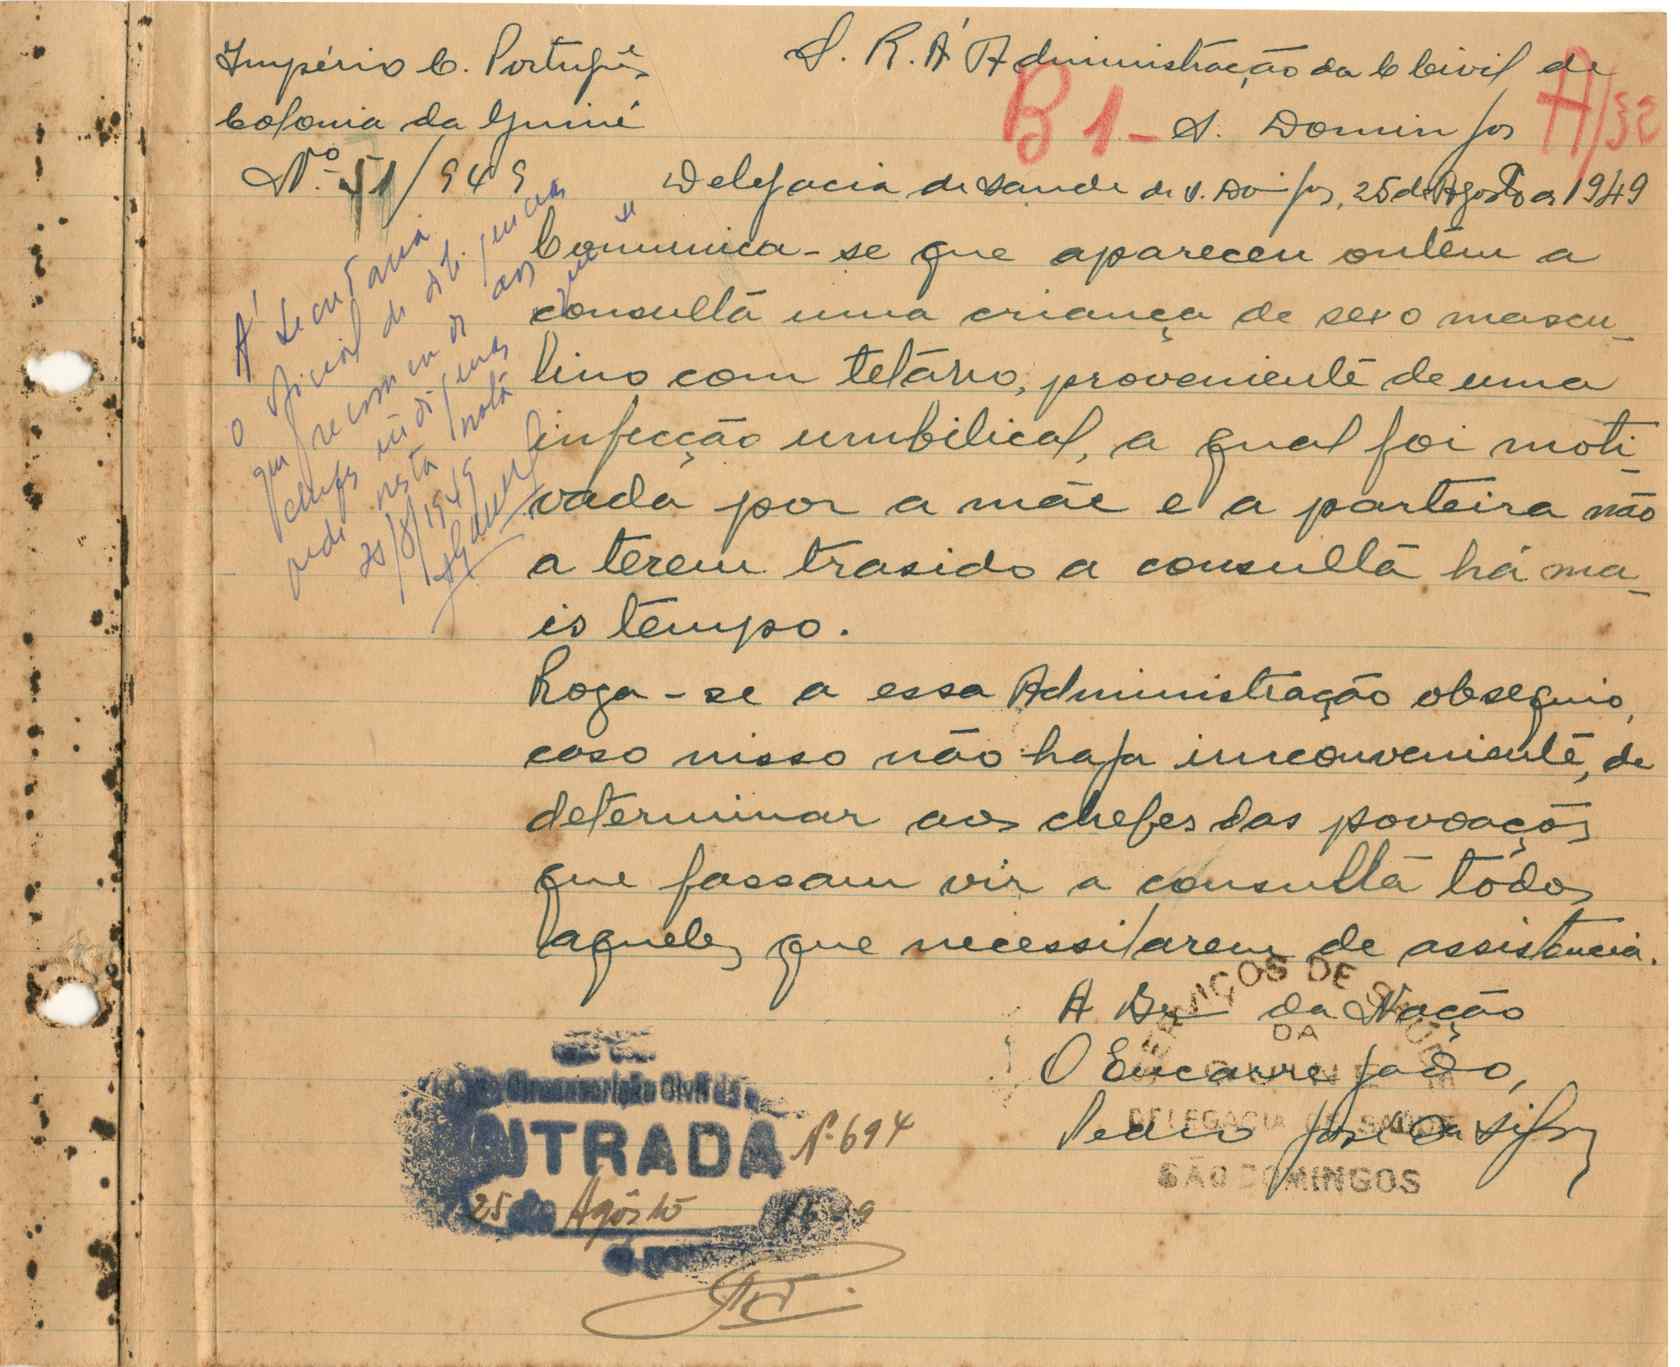 Império C. Português
Colonia da Guiné
N.º 51/949
S. R.
Á Administração da C Civil de
S. Domingos
B 1-
A/32
Delegacia de Saude de S. Domingos, 25 de Agosto de 1949
Comunica-se que apareceu ontém a
consulta uma criança de sexo mascu-
lino com tetáno, proveniente de uma
infecção umbilical, a qual foi moti-
vada por a mãe e a parteira não
a terem trasido a consulta há ma-
is tempo.
Roga-se a essa Administração obsequio,
caso nisso não haja inconveniente, de
determinar aos chefes das povoações
que fassam vir a consulta todos
aqueles que necessitarem de assistencia.
A Bem da Nação
O Encarregado,
Pedro José da Silva
SERVIÇOS DE SAUDE
DA
GUINÉ
DELEGACIA DE SAUDE
SÃO DOMINGOS
Á Secretaria
o oficial de diligencias
que recomende aos
chefes indigenas que se
pede nesta nota
25/8/1949
Circunscrição Civil de
ENTRADA
Nº 694
25 de Agôsto 1949